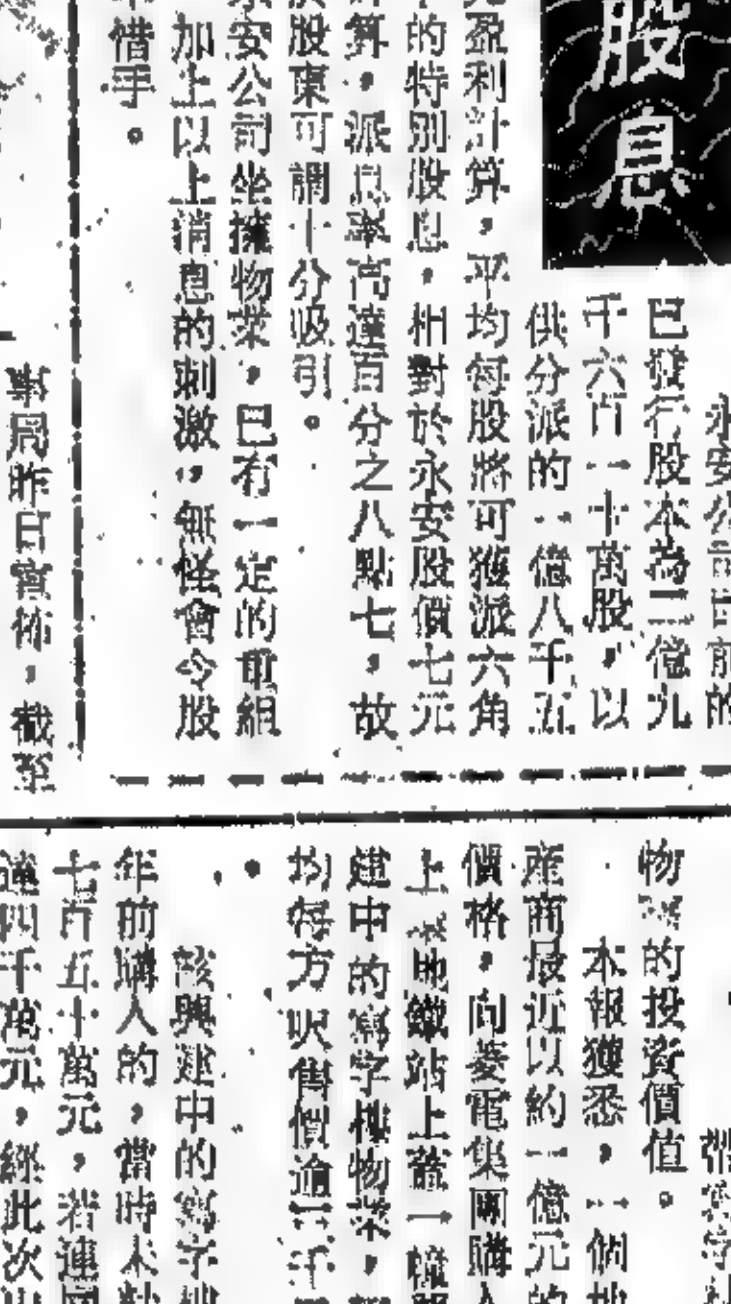 股息
永安公司目前的
已發行股本為二億九
千六百一十萬股，以
供分派的一億八千五
盈利計算，平均每股將可獲派六角
的特別股息，相對於永安股價七元
算，派息率高達百分之八點七，故
股東可謂十分吸引。
安公司坐擁物業，已有一定的重組
加上以上消息的刺激，無怪會令股
惜手。
事局昨日宣佈，截至
物業的投資價值。
本報獲悉，一個地
產商最近以約一億元的
價格，向菱電集團購入
上地鐵站上蓋一幢
建中的寫字樓物業，
均每方呎售價逾二千
該興建中的寫字樓
年前購入的，當時未
七百五十萬元，若連同
達四千萬元，經此次出